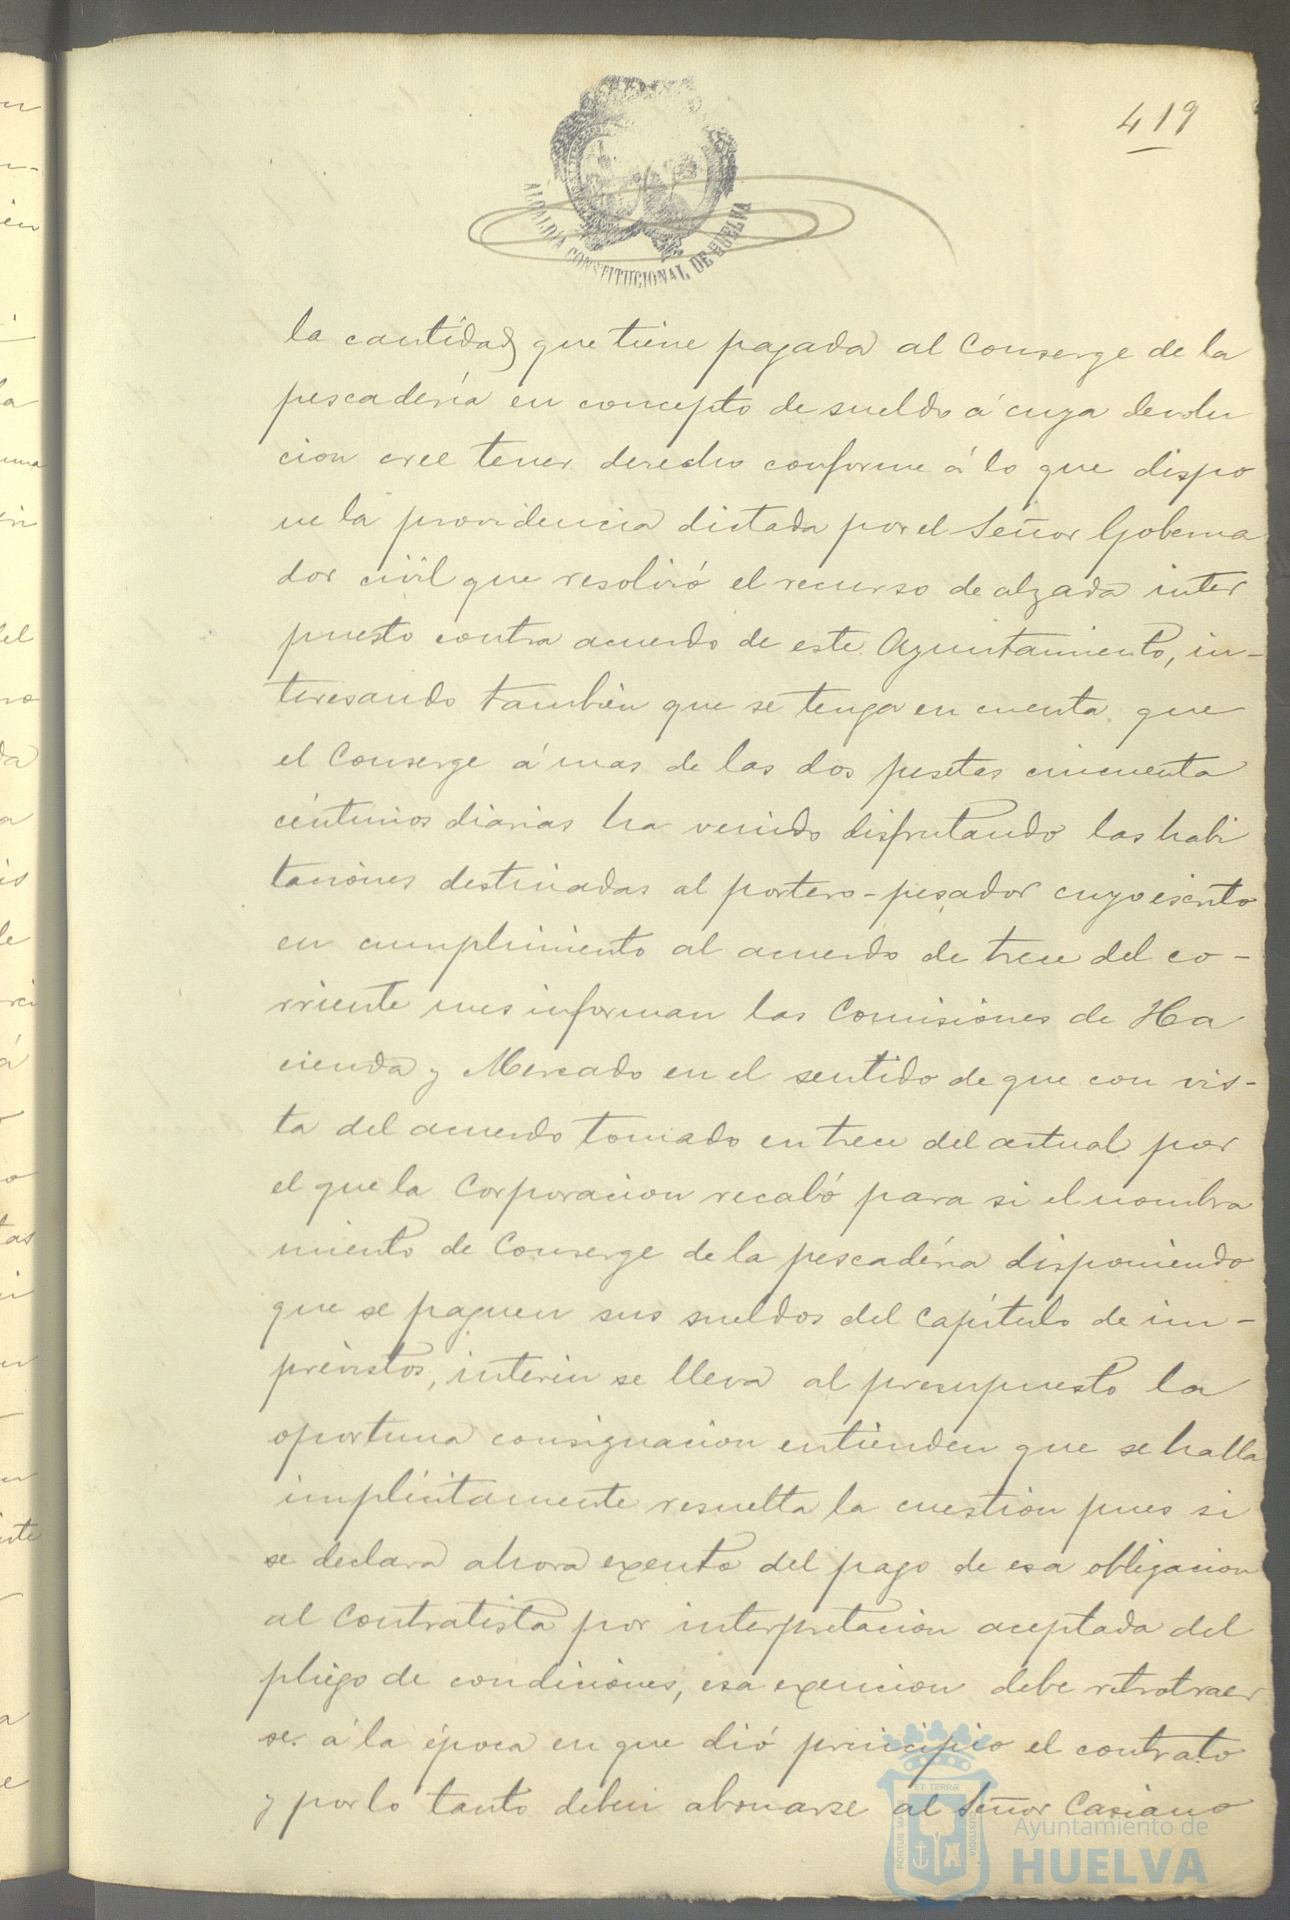 419
ALCALDÍA CONSTITUCIONAL DE HUELVA
la cantidad que tiene pagada al Conserge de la
pescadería en concepto de sueldo á cuya devolu
cion cree tener derecho conforme á lo que dispo
ne la providencia dictada por el Señor Goberna
dor civil que resolvió el recurso de alzada inter
puesto contra acuerdo de este Ayuntamiento, in-
teresando tambien que se tenga en cuenta que
el Conserge á mas de las dos pesetas cincuenta
céntimos diarias ha venido disfrutando las habi
taciones destinadas al portero-pesador cuyo escrito
en cumplimiento al acuerdo de trece del co-
rriente mes informan las Comisiones de Ha
cienda y Mercado en el sentido de que con vis-
ta del acuerdo tomado en trece del actual por
el que la Corporacion recabó para si el nombra
miento de Conserge de la pescadéria disponiendo
que se paguen sus sueldos del Capítulo de im-
previstos, interin se lleva al presupuesto la
oportuna consignacion entienden que se halla
implícitamente resuelta la cuestion pues si
se declara ahora exento del pago de esa obligacion
al Contratista por interpretacion aceptada del
pliego de condiciones, esa exencion debe retrotraer
se á la época en que dió principio el contrato
y por lo tanto deben abonarse al Señor Casiano
ET TERRÆ
PORTUS MARIS
CUSTODIA
Ayuntamiento de
HUELVA